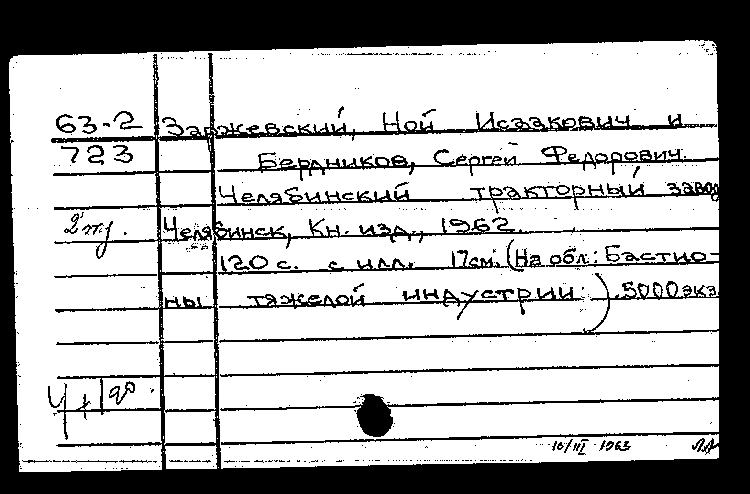 63-2 Заржевский, Ной Исаакович и
723 Бердников, Сергей Федорович.
Челябинский тракторный завод
2 Челябинск, Кн. изд., 1962.
120 с. с илл. 17см. (На обл: Бастио-
ны тяжелой индустрии.) 5000 экз.
10/III 1963